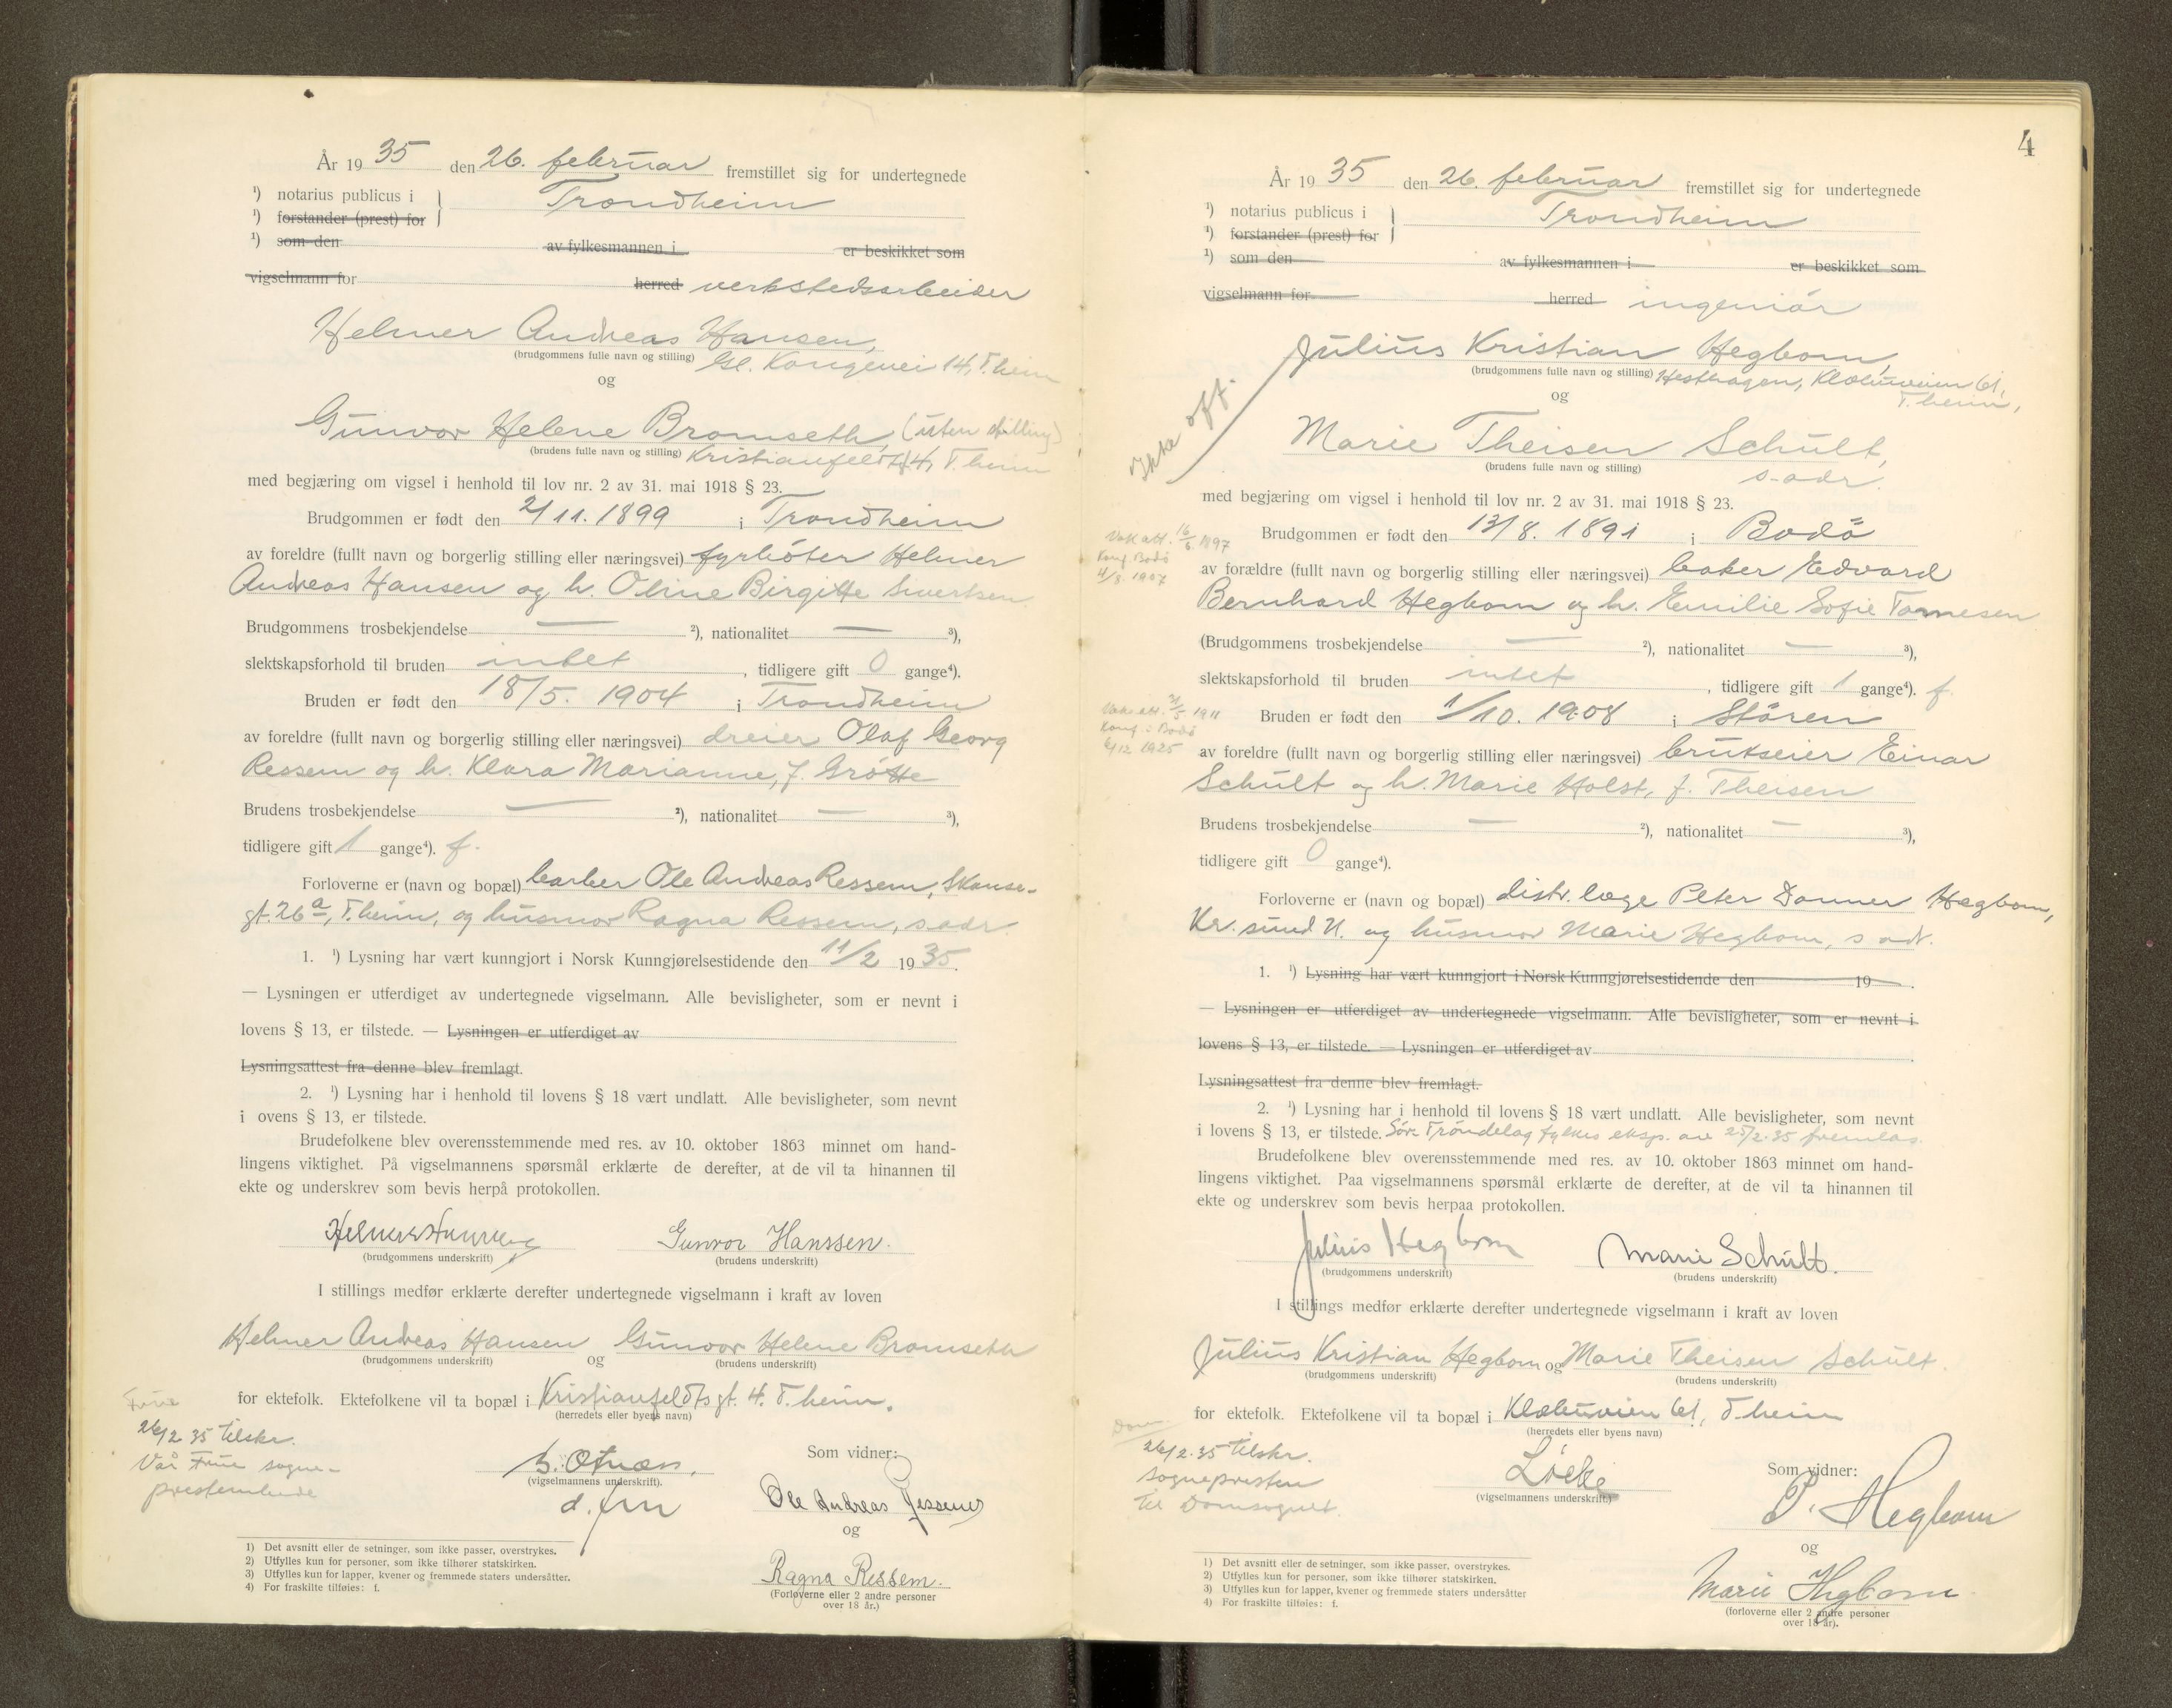 År 1935 den 26. februar fremstillet sig for undertegnede
¹) notarius publicus i Trondheim
¹) forstander (prest) for
¹) som den av fylkesmannen i er beskikket som
vigselmann for herred verkstedsarbeider
Helmer Andreas Hansen,
(brudgommens fulle navn og stilling) Gl. Kongevei 14, T.heim
og
Gunvor Helene Bromseth, (uten stilling)
(brudens fulle navn og stilling) Kristianfeldtsgt 4, T.heim
med begjæring om vigsel i henhold til lov nr. 2 av 31. mai 1918 § 23.
Brudgommen er født den 2/11. 1899 i Trondheim
av foreldre (fullt navn og borgerlig stilling eller næringsvei) fyrbøter Helmer
Andreas Hansen og h. Oline Birgitte Sivertsen
Brudgommens trosbekjendelse — ²), nationalitet — ³),
slektskapsforhold til bruden intet, tidligere gift 0 gange⁴).
Bruden er født den 18/5. 1904 i Trondheim
av foreldre (fullt navn og borgerlig stilling eller næringsvei) dreier Olaf Georg
Ressem og h. Klara Marianne, f. Grøtte
Brudens trosbekjendelse — ²), nationalitet — ³),
tidligere gift 1 gange⁴). f.
Forloverne er (navn og bopæl) barber Ole Andreas Ressem, Skanse-
gt. 26a, T.heim, og husmor Ragna Ressem, s.adr.
1. ¹) Lysning har vært kunngjort i Norsk Kunngjørelsestidende den 11/2 1935.
— Lysningen er utferdiget av undertegnede vigselmann. Alle bevisligheter, som er nevnt i
lovens § 13, er tilstede. — Lysningen er utferdiget av
Lysningsattest fra denne blev fremlagt.
2. ¹) Lysning har i henhold til lovens § 18 vært undlatt. Alle bevisligheter, som nevnt
i ovens § 13, er tilstede.
Brudefolkene blev overensstemmende med res. av 10. oktober 1863 minnet om hand-
lingens viktighet. På vigselmannens spørsmål erklærte de derefter, at de vil ta hinannen til
ekte og underskrev som bevis herpå protokollen.
Gunvor Hanssen.
(brudgommens underskrift) (brudens underskrift)
I stillings medfør erklærte derefter undertegnede vigselmann i kraft av loven
Helmer Andreas Hansen og Gunvor Helene Bromseth
(brudgommens underskrift) (brudens underskrift)
for ektefolk. Ektefolkene vil ta bopæl i Kristianfeldtsgt. 4. T.heim.
(herredets eller byens navn)
Frue
26/2 35 tilskr.
Vår Frue sogne-
prestembede
Som vidner:
(vigselmannens underskrift).
Ole Andreas Ressem
og
Ragna Ressem.
(Forloverne eller 2 andre personer
over 18 år.)
1) Det avsnitt eller de setninger, som ikke passer, overstrykes.
2) Utfylles kun for personer, som ikke tilhører statskirken.
3) Utfylles kun for lapper, kvener og fremmede staters undersåtter.
4) For fraskilte tilføies: f.
4
År 1935 den 26. februar fremstillet sig for undertegnede
¹) notarius publicus i Trondheim
¹) forstander (prest) for
¹) som den av fylkesmannen i er beskikket som
vigselmann for herred ingeniør
Julius Kristian Hegbom,
(brudgommens fulle navn og stilling) Hesthagen, Klæbuveien 61,
T.heim,
og
Ikke off.
Marie Theisen Schult,
(brudens fulle navn og stilling) s. adr.
med begjæring om vigsel i henhold til lov nr. 2 av 31. mai 1918 § 23.
Vak.att. 16/6. 1897
Konf. Bodø
4/8. 1907
Brudgommen er født den 13/8. 1891 i Bodø
av forældre (fullt navn og borgerlig stilling eller næringsvei) baker Edvard
Bernhard Hegbom og h. Emilie Sofie
(Brudgommens trosbekjendelse — ²), nationalitet — ³),
slektskapsforhold til bruden intet, tidligere gift 1 gange⁴). f.
Konf. i Bodø
6/12 1925
Bruden er født den 1/10. 1908 i Støren
av foreldre (fullt navn og borgerlig stilling eller næringsvei) brukseier Einar
Schult og h. Marie Holst, f. Theisen
Brudens trosbekjendelse — ²), nationalitet — ³),
tidligere gift 0 gange⁴).
Forloverne er (navn og bopæl) distr. læge Peter Danner Hegbom,
Kr. sund N. og husmor Marie Hegbom, s adr.
1. ¹) Lysning har vært kunngjort i Norsk Kunngjørelsestidende den 19 .
— Lysningen er utferdiget av undertegnede vigselmann. Alle bevisligheter, som er nevnt i
lovens § 13, er tilstede. — Lysningen er utferdiget av
Lysningsattest fra denne blev fremlagt.
2. ¹) Lysning har i henhold til lovens § 18 vært undlatt. Alle bevisligheter, som nevnt
i lovens § 13, er tilstede. Sør Trøndelag fylkes eksp. av 25/2. 35 fremlas.
Brudefolkene blev overensstemmende med res. av 10. oktober 1863 minnet om hand-
lingens viktighet. Paa vigselmannens spørsmål erklærte de derefter, at de vil ta hinannen til
ekte og underskrev som bevis herpaa protokollen.
Julius Hegbom Marie Schult.
(brudgommens underskrift) (brudens underskrift)
I stillings medfør erklærte derefter undertegnede vigselmann i kraft av loven
Julius Kristian Hegbom og Marie Theisen Schult.
(brudgommens underskrift) (brudens underskrift)
for ektefolk. Ektefolkene vil ta bopæl i Klæbuveien 61, T.heim
(herredets eller byens navn)
Dom
26/2. 35 tilskr.
sognepresten
til Domsognet.
Som vidner:
(vigselmannens underskrift)
P. Hegbom
og
Marie Hegbom
(forloverne eller 2 andre personer
over 18 år).
1) Det avsnitt eller de setninger, som ikke passer, overstrykes.
2) Utfylles kun for personer, som ikke tilhører statskirken.
3) Utfylles kun for lapper, kvener og fremmede staters undersåtter
4) For fraskilte tilføies: f.